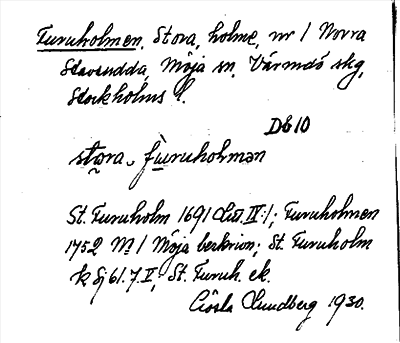 Furuholmen, Stora, holme, nr 1 Norra
Stavsudda, Möja sn, Värmdö skg,
Stockholms l.
Db 10
stora furuholmən
St. Furuholm 1691 IV:1; Furuholmen
1752 M 1 Möja beskrivn; St. Furuholm
k Sj 61. 7. II; St. Furuh. ek.
Gösta Lundberg 1930.